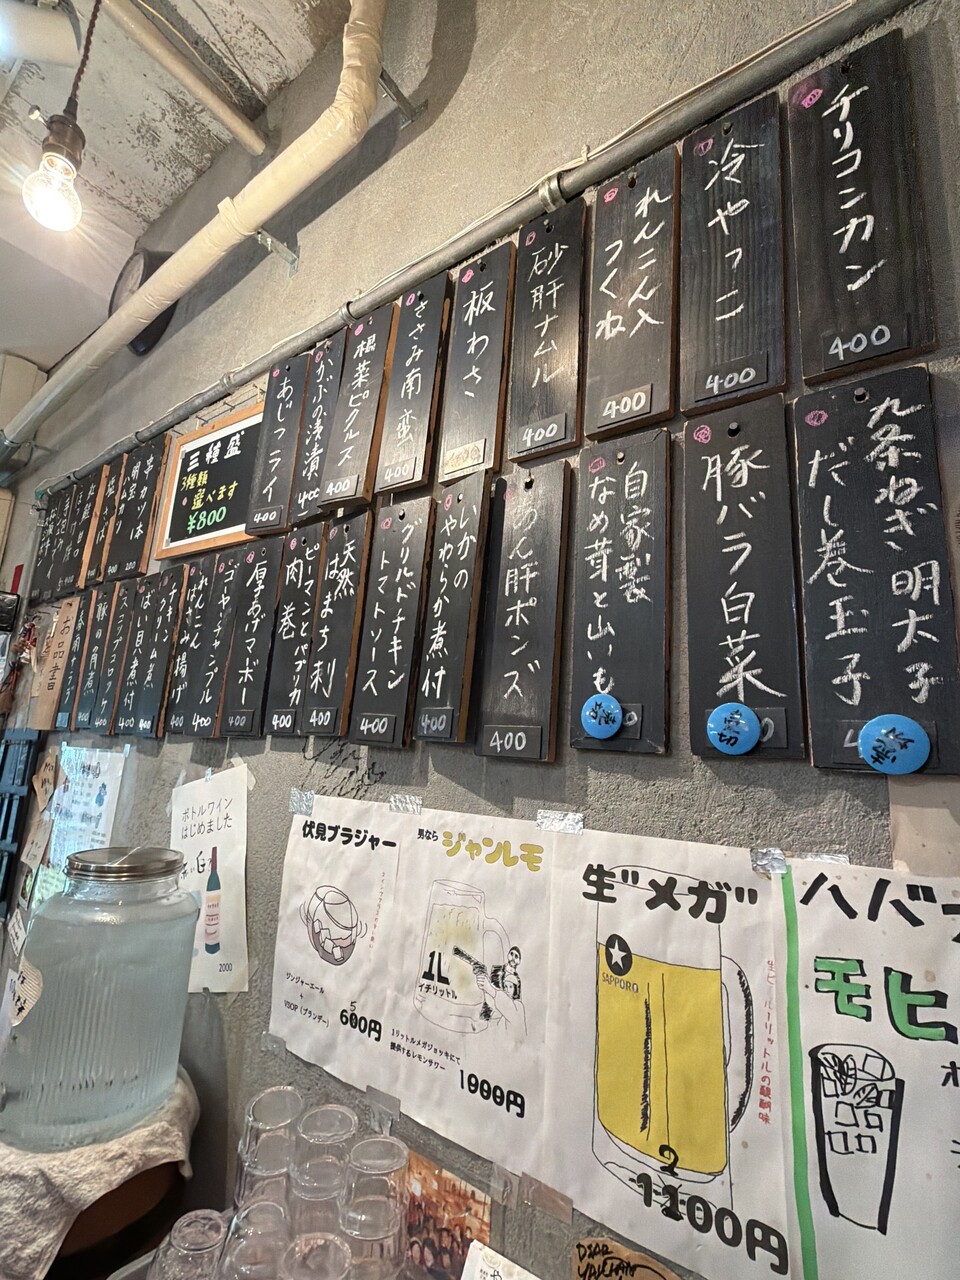 チリコンカン
400
冷やっこ
400
れんこん入
つくね
400
砂肝ナムル
400
板わさ
ささみ南蛮
400
根菜ピクルス
400
かぶの浅漬
400
あじフライ
400
三種盛
3種類
選べます
¥800
九条ねぎ明太子
だし巻玉子
豚バラ白菜
自家製
なめ茸と山いも
あん肝ポンズ
400
いかの
やわらか煮付
400
グリルドチキン
トマトソース
400
天然
はまち刺
400
ピーマンとパプリカ
肉巻
400
厚あげマボー
400
ゴーヤチャンプル
400
れんこん
はさみ揚げ
400
ばい貝煮付
400
スコップコロッケ
400
豚の角煮
400
お品書
ボトルワイン
はじめました
2000
伏見ブラジャー
ジンジャーエール
+
VSOP(ブランデー)
600円
5
男なら
ジャンレモ
1L
イチリットル
1リットルメガジョッキにて
提供するレモンサワー
1000円
生"メガ"
SAPPORO
生ビール1リットルの醍醐味
1100円
2
ハバナ
モヒ
DEAR